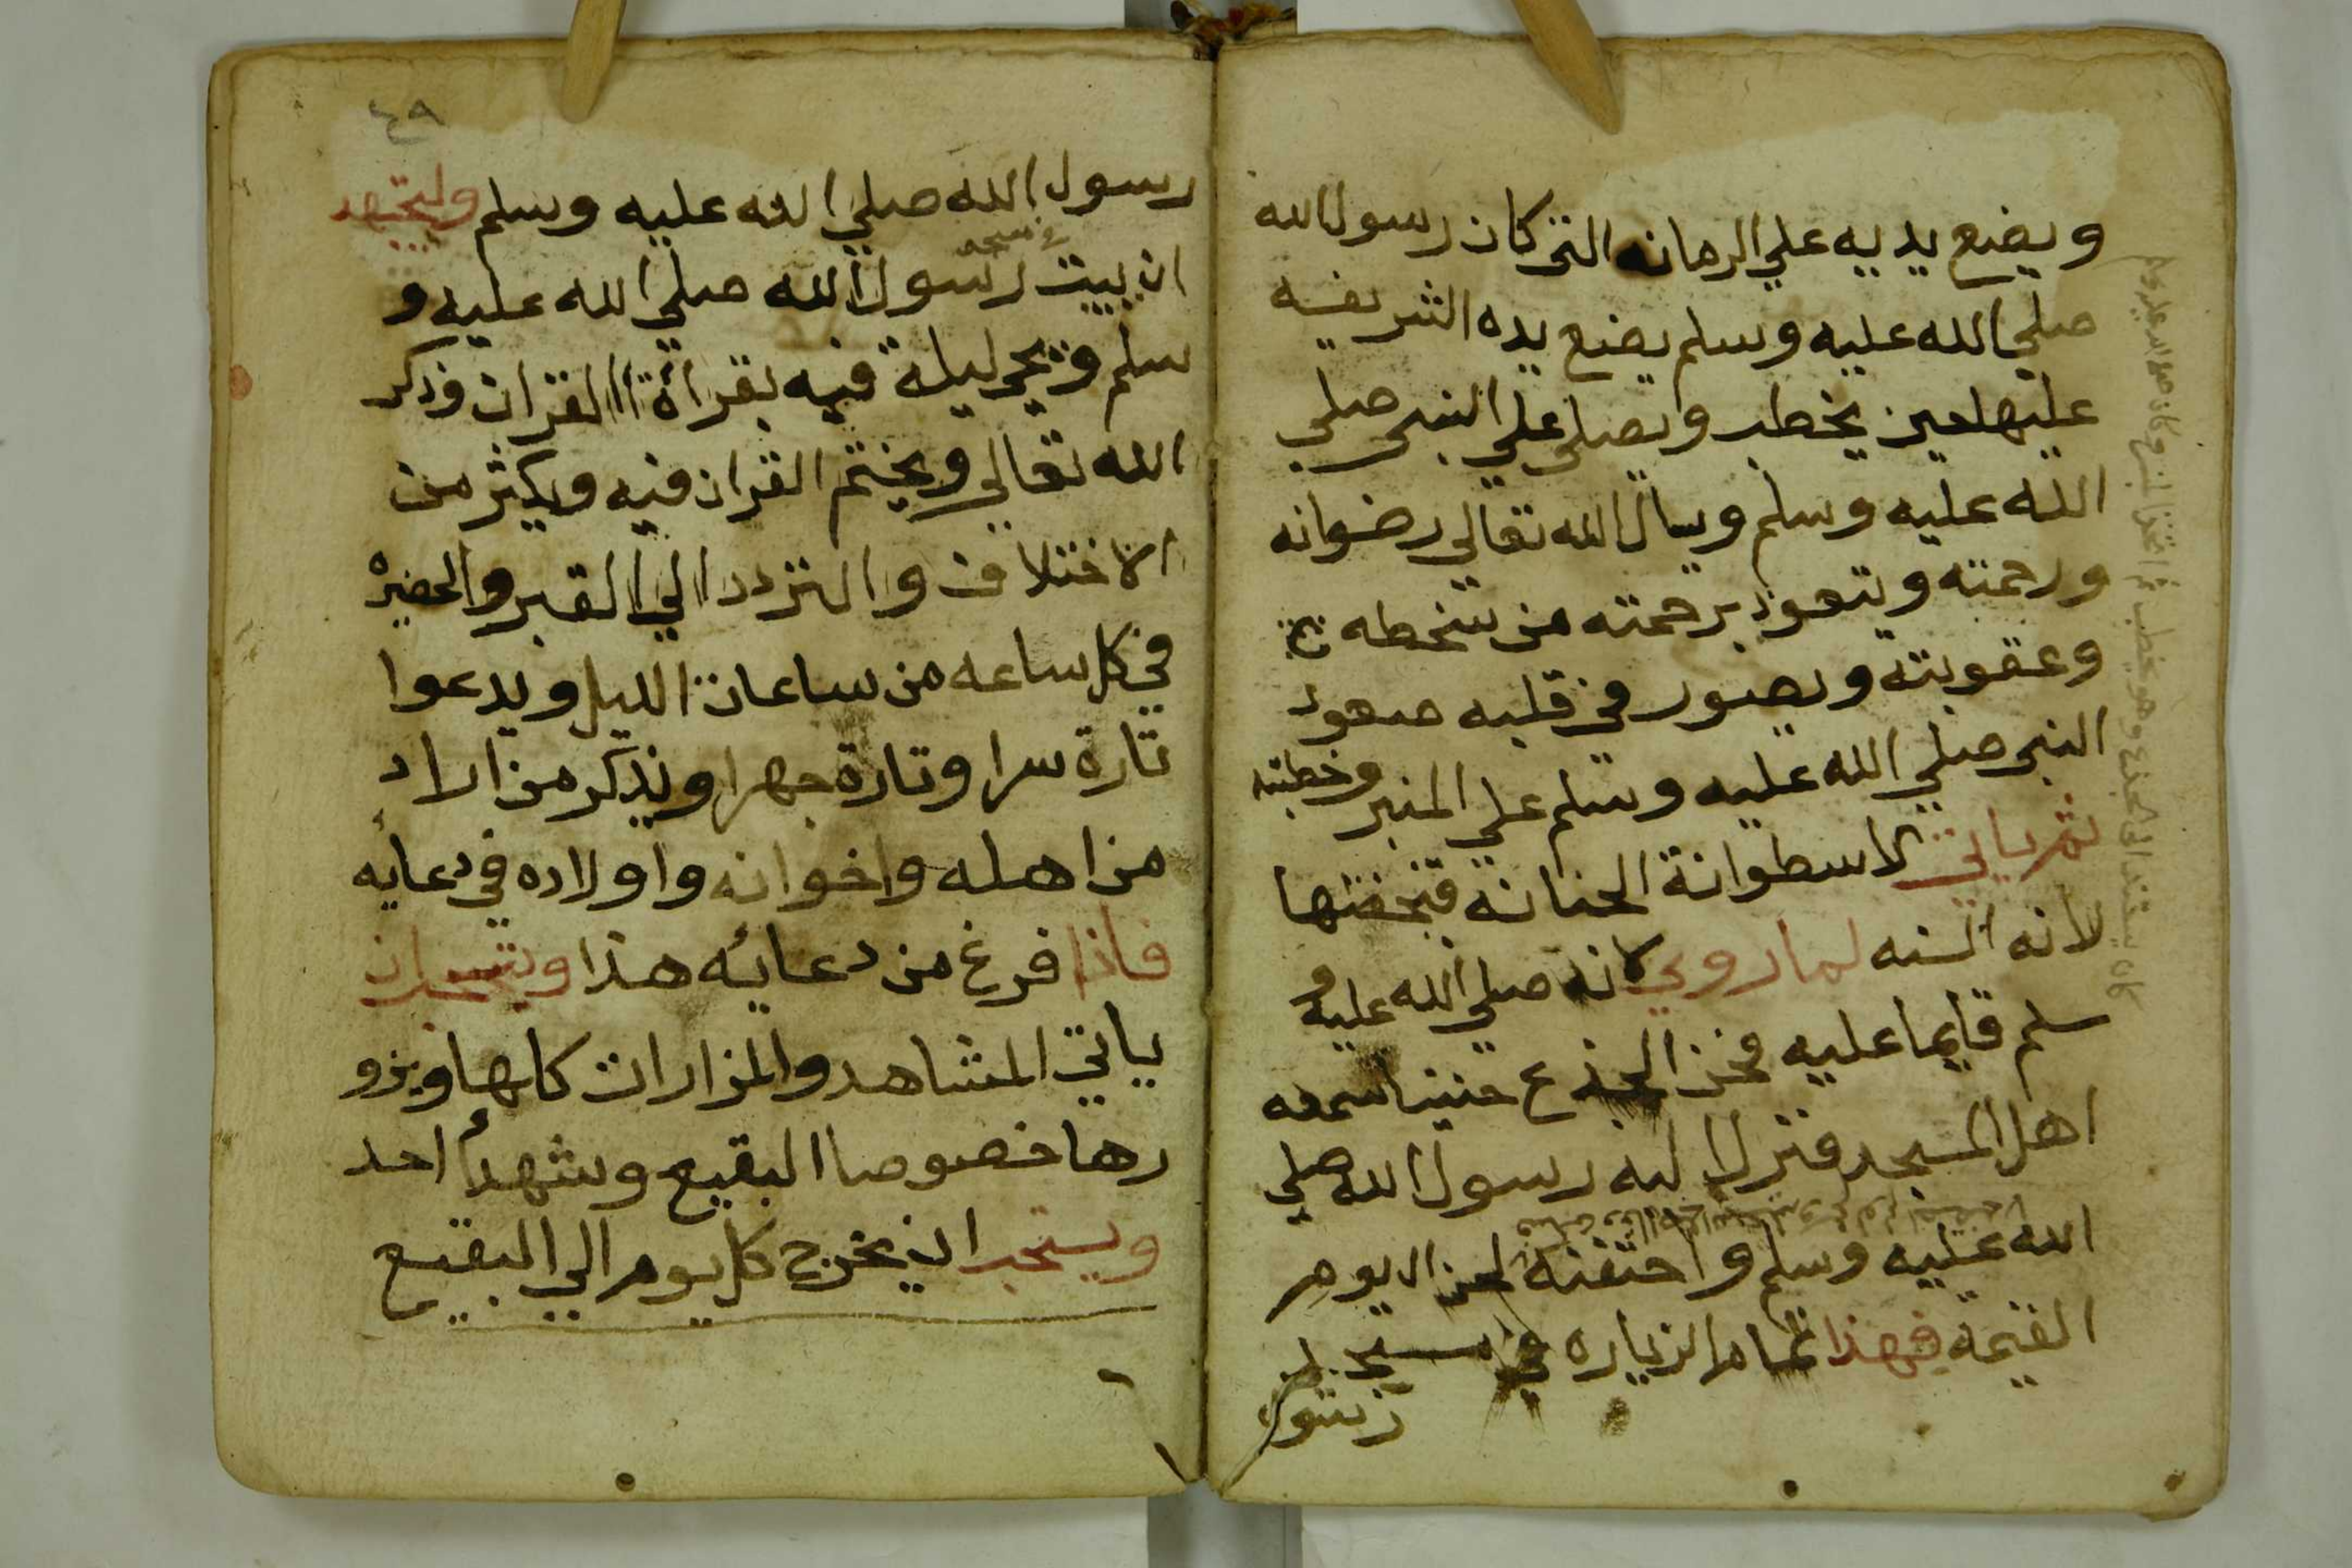 ويضع يديه علي الرمانه التي كان رسول الله
صلي الله عليه وسلم يضع يده الشريفه
عليها حين يخطب ويصلي علي النبي صلي
الله عليه وسلم ويسال الله تعالي رضوانه
ورحمته ويتعوذ برحمته من سخطه
وعقوبته ويصور في قلبه صعود
النبي صلي الله عليه وسلم علي المنبر وخطبته
ثم ياتي الاسطوانة الحنانه
لانه السنه لما روي انه صلي الله عليه و
سلم قايما عليه فحن الجذع حنينا سمعه
اهل المسجد فنزل اليه رسول الله صلي
الله عليه وسلم واحتضنه لحن الا يوم
القيمة فهذا تمام الزياره في مسجد
رسول
كان يستند الى الجذع وهو يخطب ثم اتخذ المنبر وكان صلى الله عليه وسلم
٤٩
رسول الله صلي الله عليه وسلم وليجتهد
ان يبيت في مسجد رسول الله صلي الله عليه و
سلم ويحي ليلة فيه بقراءة القران وذكر
الله تعالي ويختم القران فيه ويكثر من
الاختلاف والتردد الي القبر والحضره
في كل ساعه من ساعات الليل ويدعوا
تارة سرا وتارة جهرا ويذكر من اراد
من اهله واخوانه واولاده في دعائه
فاذا فرغ من دعائه هذا ويستحب ان
ياتي المشاهد والمزارات كلها ويزو
رها خصوصا البقيع وشهدأ احد
ويستحب ان يخرج كل يوم الي البقيع